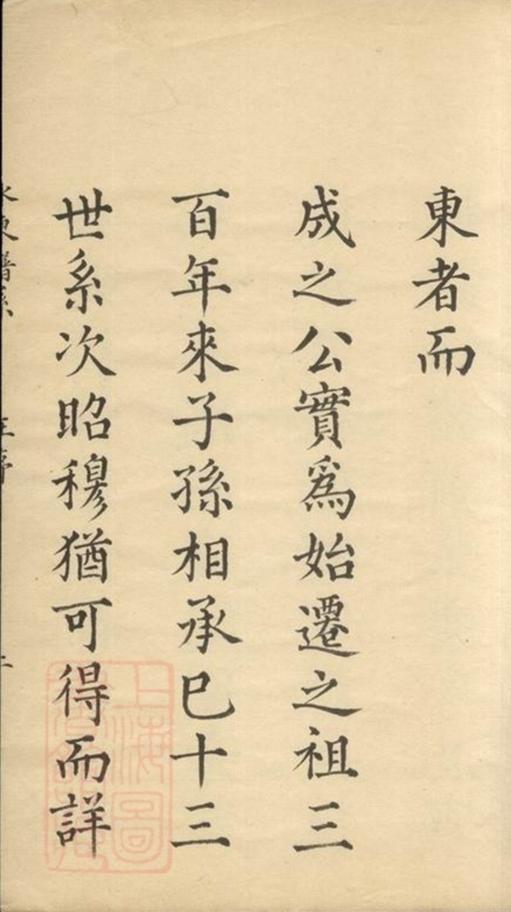 東者而
成之公實爲始遷之祖三
百年來子孫相承巳十三
世系次昭穆猶可得而詳